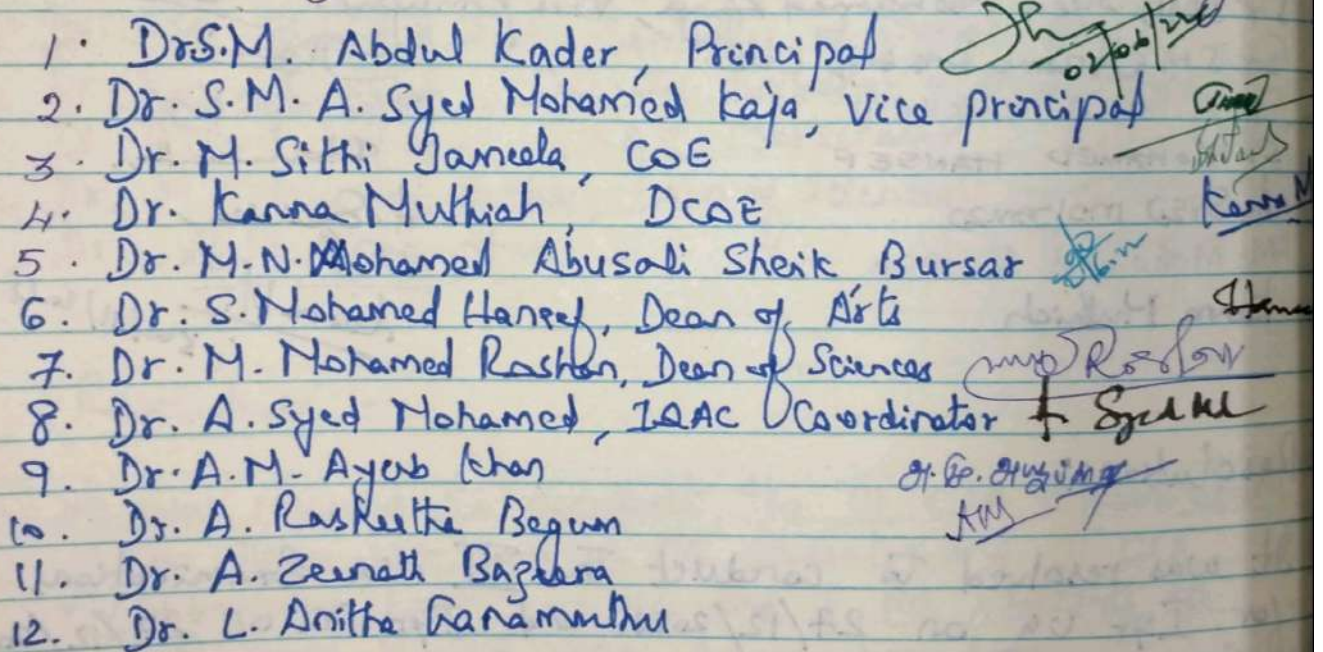 1. Dr.S.M. Abdul Kader, Principal 02/06/22
2. Dr. S.M.A. Syed Mohamed Kaja, Vice principal
3. Dr. M. Sithi Jameela, COE
4. Dr. Kanna Muthiah, DCOE Kanna M
5. Dr. M.N. Mohamed Abusali Sheik Bursar
6. Dr. S. Mohamed Haneef, Dean of Arts
7. Dr. M. Mohamed Roshan, Dean of Sciences
8. Dr. A. Syed Mohamed, IQAC Coordinator
9. Dr. A.M. Ayub Khan
10. Dr. A. Rasheetha Begum
11. Dr. A. Zeenath Bazeera
12. Dr. L. Anitha Ganamuthu